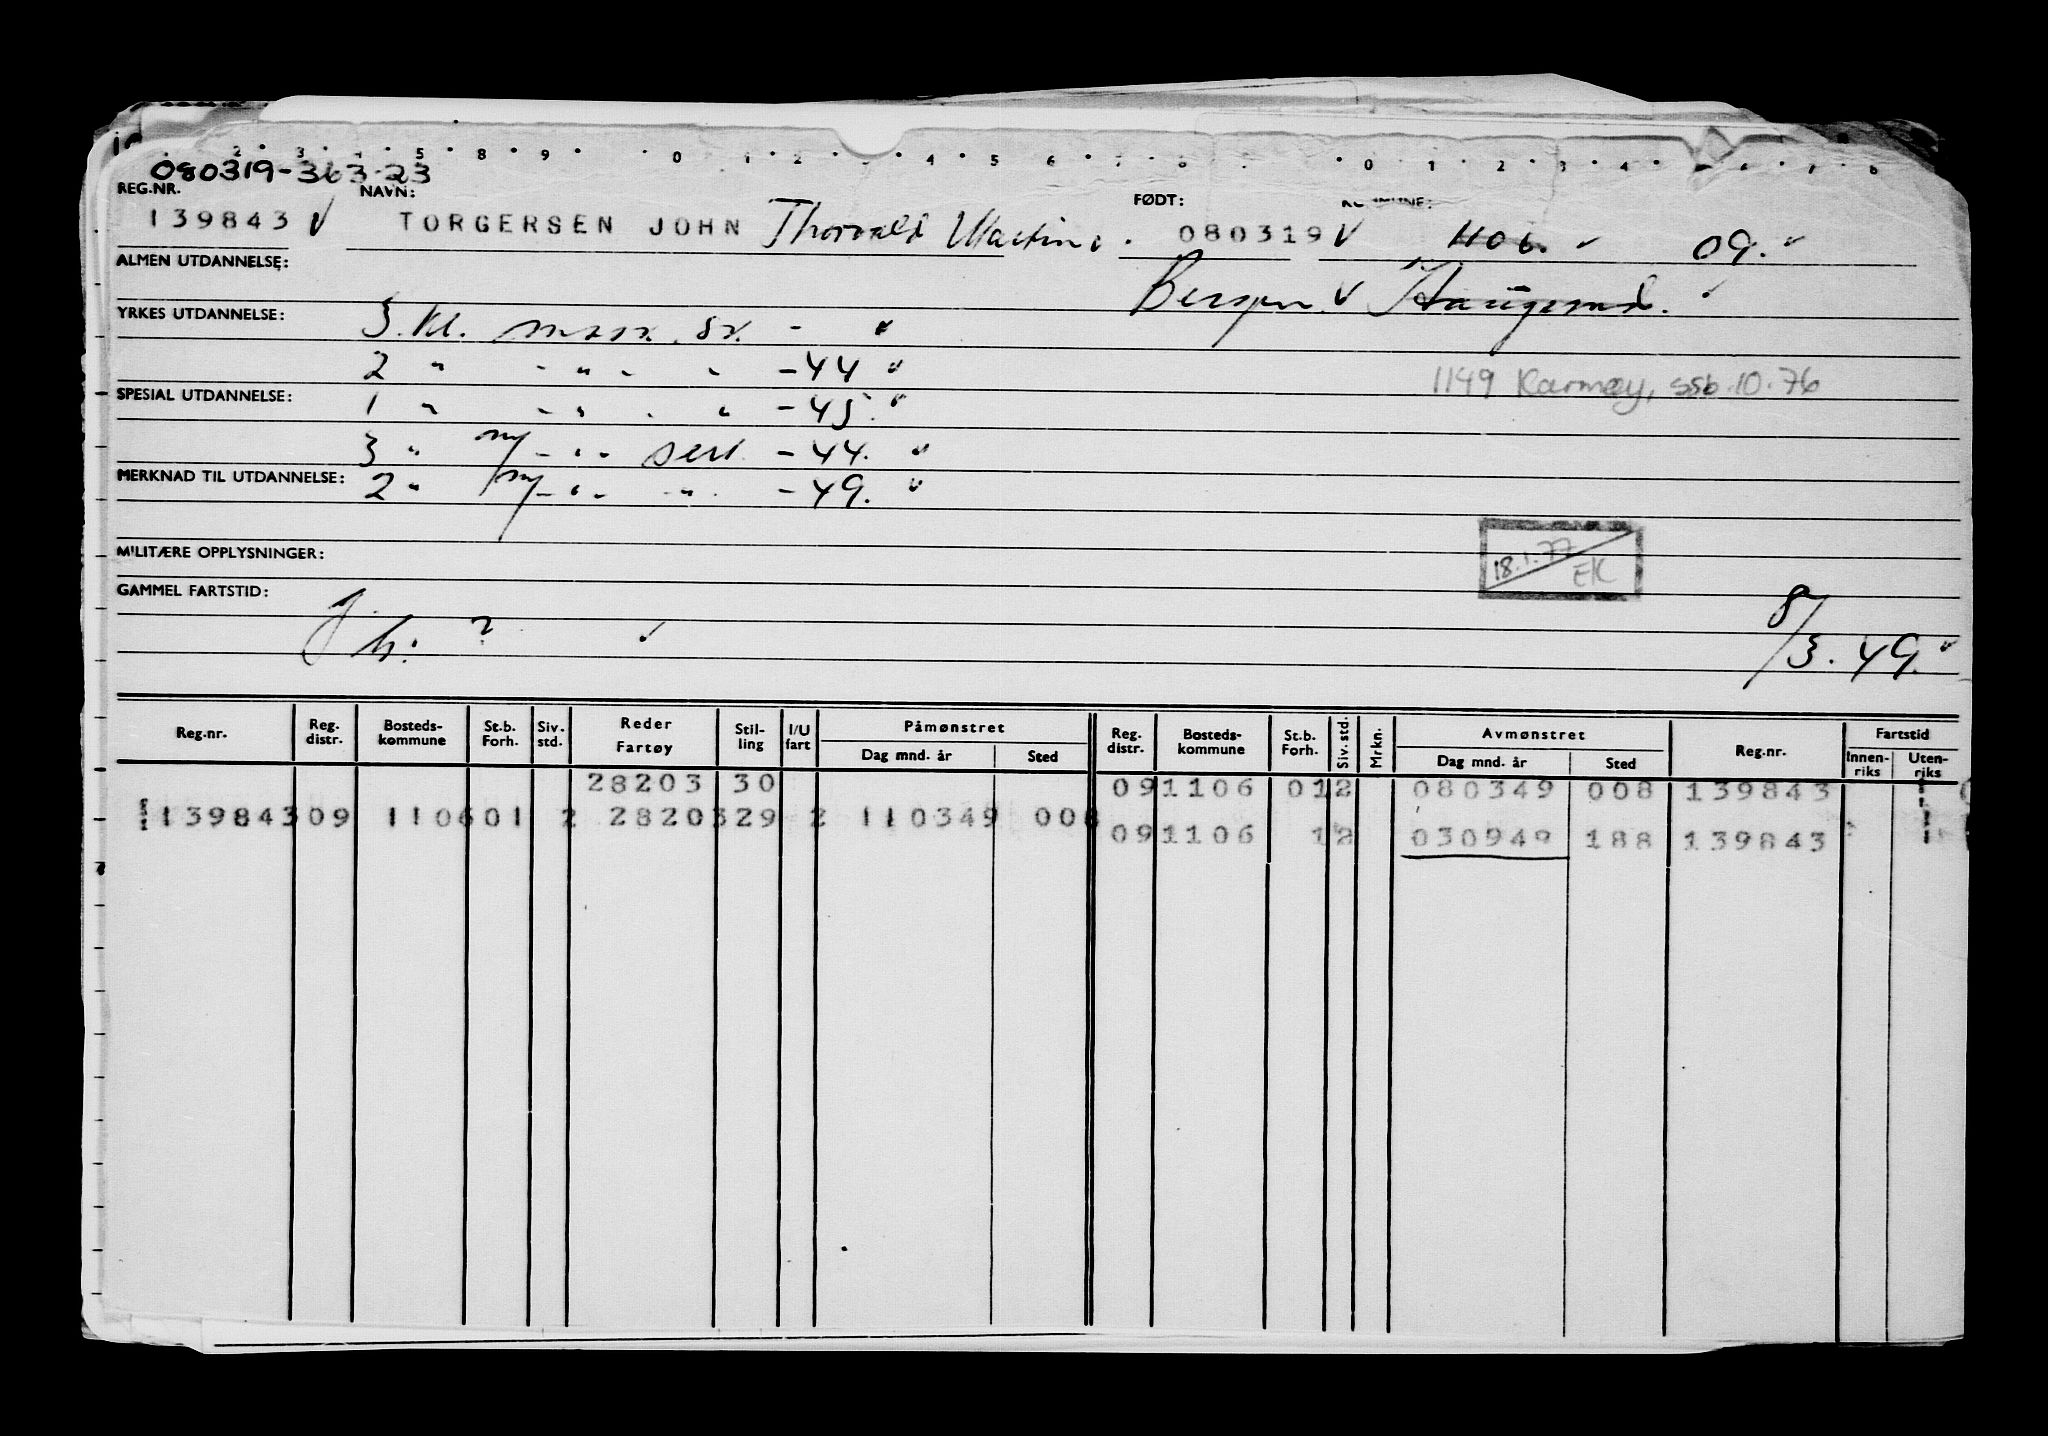 080319-363-23
REG.NR. NAVN: FØDT: KOMMUNE:
139843 TORGERSEN JOHN Thorvald Martin. 080319 1106. 09.
ALMEN UTDANNELSE:
Bergen Haugesund.
YRKES UTDANNELSE: 3. kl. mask. sk. - "
2 " - " - " -44 "
1149 Karmøy, ssb.10.76
SPESIAL UTDANNELSE: 1 " - " - " -45. "
3 " - " - sert. -44. "
MERKNAD TIL UTDANNELSE: 2 " - " - " -49. "
18.1.77 EK
MILITÆRE OPPLYSNINGER:
GAMMEL FARTSTID:
h: ? 8/3.49.
Reg.nr. Reg. distr. Bosteds-kommune St.b. Forh. Siv. std. Reder Fartøy Stil-ling I/U fart Påmønstret Dag mnd. år Sted Reg. distr. Bosteds-kommune St.b. Forh. Siv. std. Mrkn. Avmønstret Dag mnd. år Sted Reg.nr. Fartstid Innen-riks Uten-riks
28203 30 09 1106 01 2 080349 008 139843
139843 09 1106 01 2 28203 29 2 110349 008
09 1106 1 2 030949 188 139843